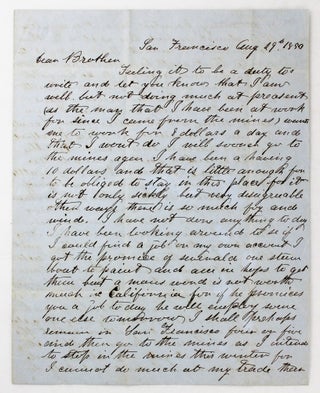 San Francisco Aug 29th 1850
dear Brother
Feeling it to be a duty to
write and let you know that I am
well but not doing much at preasent
as the man that I have been at work
for since I came from the mines wants
me to work for 8 dollars a day and
that I wont do I will sooner go to
the mines agen I have ben a having
10 dollars and that is little anough for
to be obliged to stay in this place for it
is not only sickly but very disgreable
other ways there is so much fog and
winde I have not don any thing to day
I have been looking around to se if
I could find a job on my own account I
got the promice of one
boat to paint and am in hopes to get
them but a mans word is not worth
much in California for if he promices
you a job to day he will employ some
one else tomorrow I shall perhaps
remain in San Francisco four or five
and then go to the mines as I intend
to stop in the mines this winter for
I cannot do much at my trade there